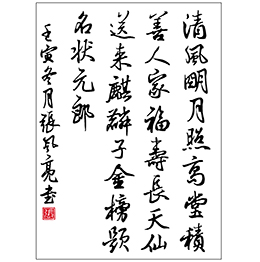 清風明月照高堂積
善人家福壽長天仙
送来麒麟子金榜题
名状元郎
壬寅冬月張風亮書